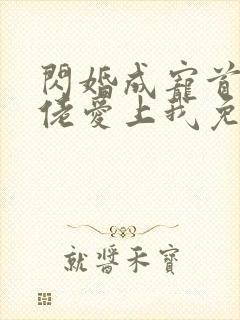 閃婚成寵首
佬愛上我免
就醬禾寶